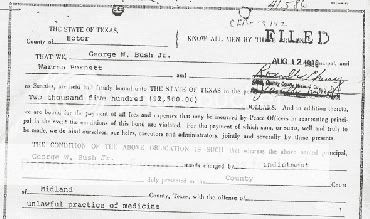 THE STATE OF TEXAS,
County of Ector
KNOW ALL MEN BY THESE
FILED
THAT WE, George W. Bush Jr.
AUG 12
Warren Burnett and
as Sureties, are held and firmly bound unto THE STATE OF TEXAS in the
Two thousand five hundred ($2,500.00)
DOLLARS. And in addition thereto,
we are bound for the payment of all fees and expenses that may be incurred by Peace Officers in rearresting princi-
pal in the event the conditions of this bond are violated. For the payment of which sum, or sums, well and truly to
be made, we do bind ourselves, our heirs, executors and administrators, jointly and severally by these presents.
THE CONDITION OF THE ABOVE OBLIGATION IS SUCH that whereas the above principal,
George W. Bush Jr. stands charged by indictment
duly presented in County Court
of
Midland County, Texas, with the offense of
unlawful practice of medicine